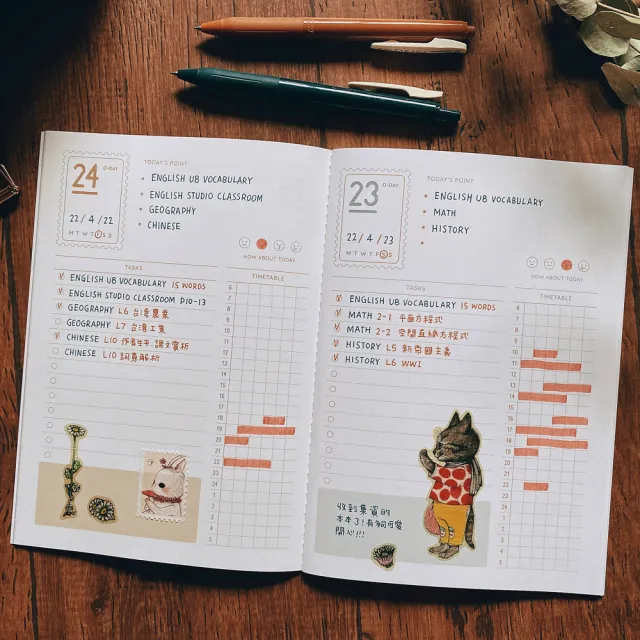 24 D-DAY
22/4/22
M T W T F S S
TODAY'S POINT
• ENGLISH U8 VOCABULARY
• ENGLISH STUDIO CLASSROOM
• GEOGRAPHY
• CHINESE
HOW ABOUT TODAY
TASKS
ENGLISH U8 VOCABULARY 15 WORDS
ENGLISH STUDIO CLASSROOM P10-13
GEOGRAPHY L6 台灣農業
GEOGRAPHY L7 台灣工業
CHINESE L10 作者生平.課文賞析
CHINESE L10 詞義解析
TIMETABLE
6
7
8
9
10
11
12
13
14
15
16
17
18
19
20
21
22
23
24
1
2
3
4
5
23 D-DAY
22/4/23
M T W T F S S
TODAY'S POINT
• ENGLISH U8 VOCABULARY
• MATH
• HISTORY
HOW ABOUT TODAY
TASKS
ENGLISH U8 VOCABULARY 15 WORDS
MATH 2-1 平面方程式
MATH 2-2 空間直線方程式
HISTORY L5 新帝國主義
HISTORY L6 WWI
TIMETABLE
6
7
8
9
10
11
12
13
14
15
16
17
18
19
20
21
22
23
24
1
2
3
4
5
收到集資的
本本了!有夠可愛
開心!!!